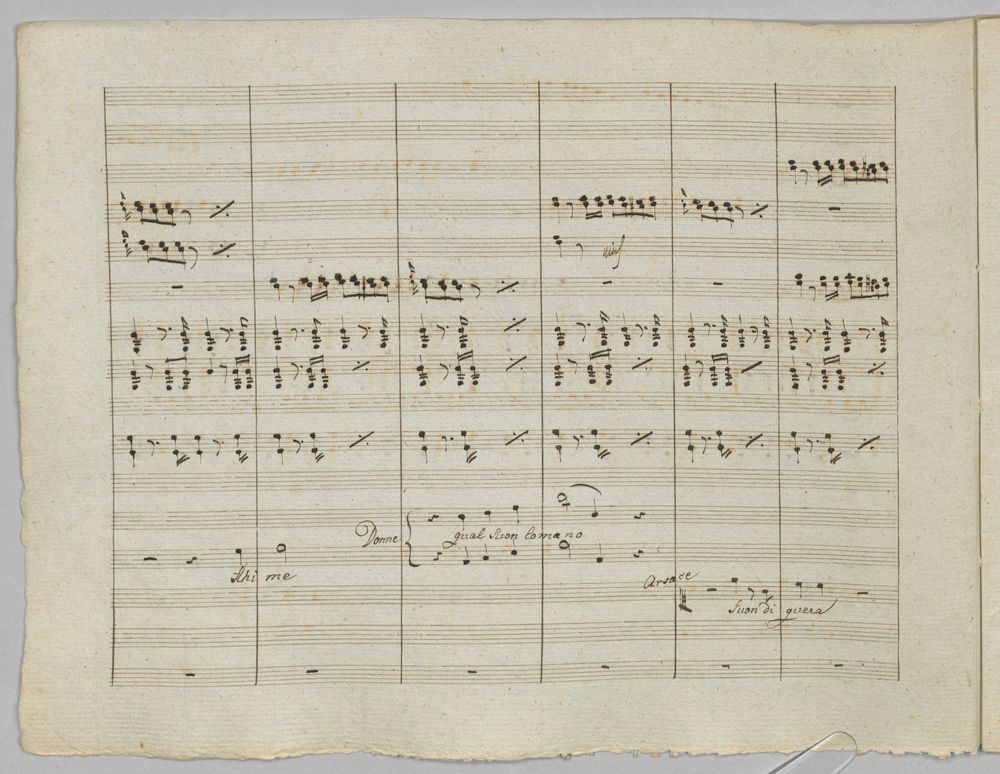 unis
Donne
qual suon lomano
Ahi me
Arsace
suon di guera